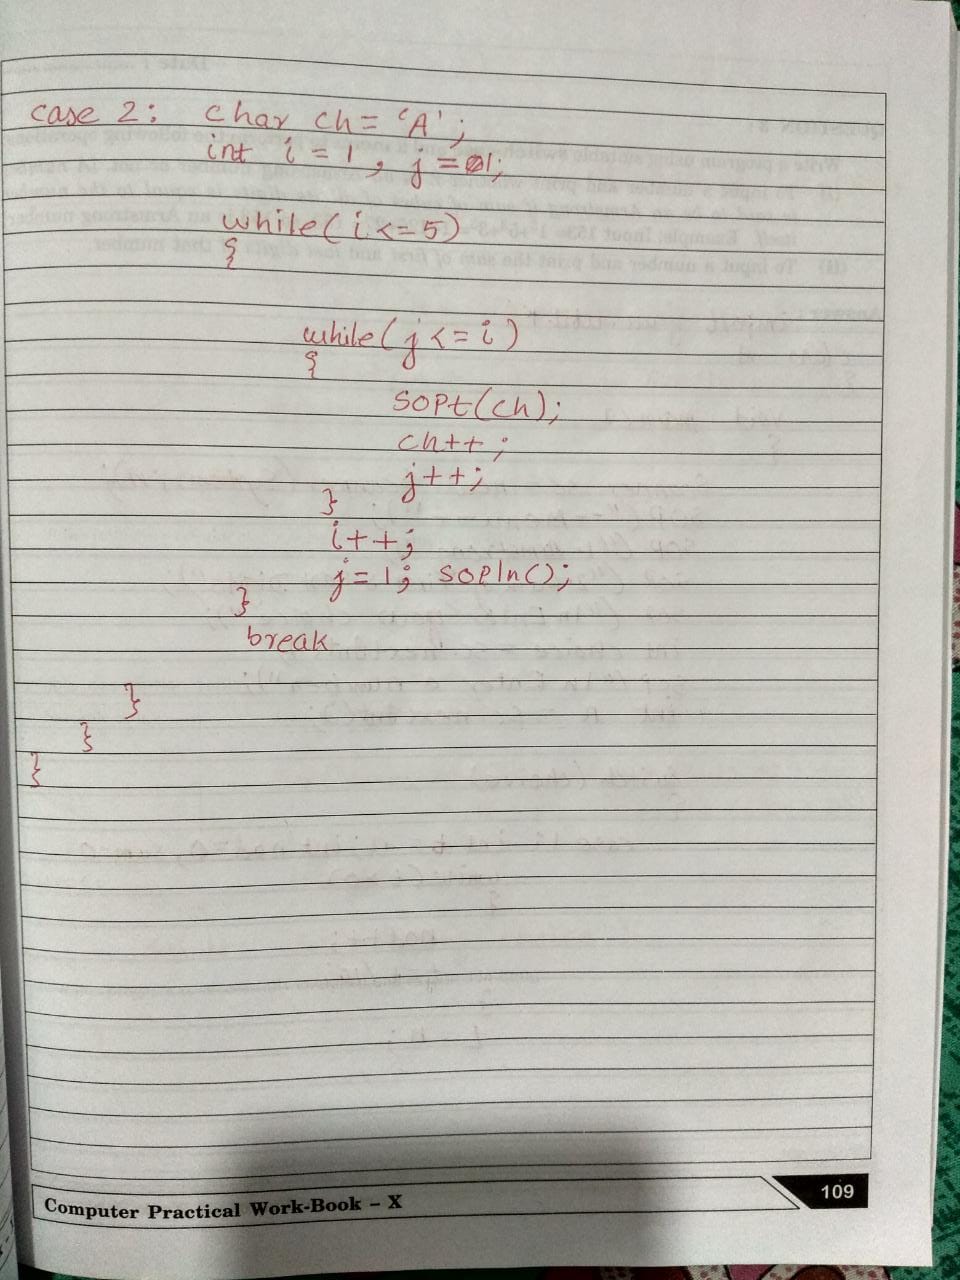 case 2: char ch = 'A';
int i = 1, j = 1;
while(i<=5)
{
while(j<=i)
{
SOPt(ch);
ch++;
j++;
}
i++;
j=1; SOPln();
}
break
}
}
}
Computer Practical Work-Book – X
109